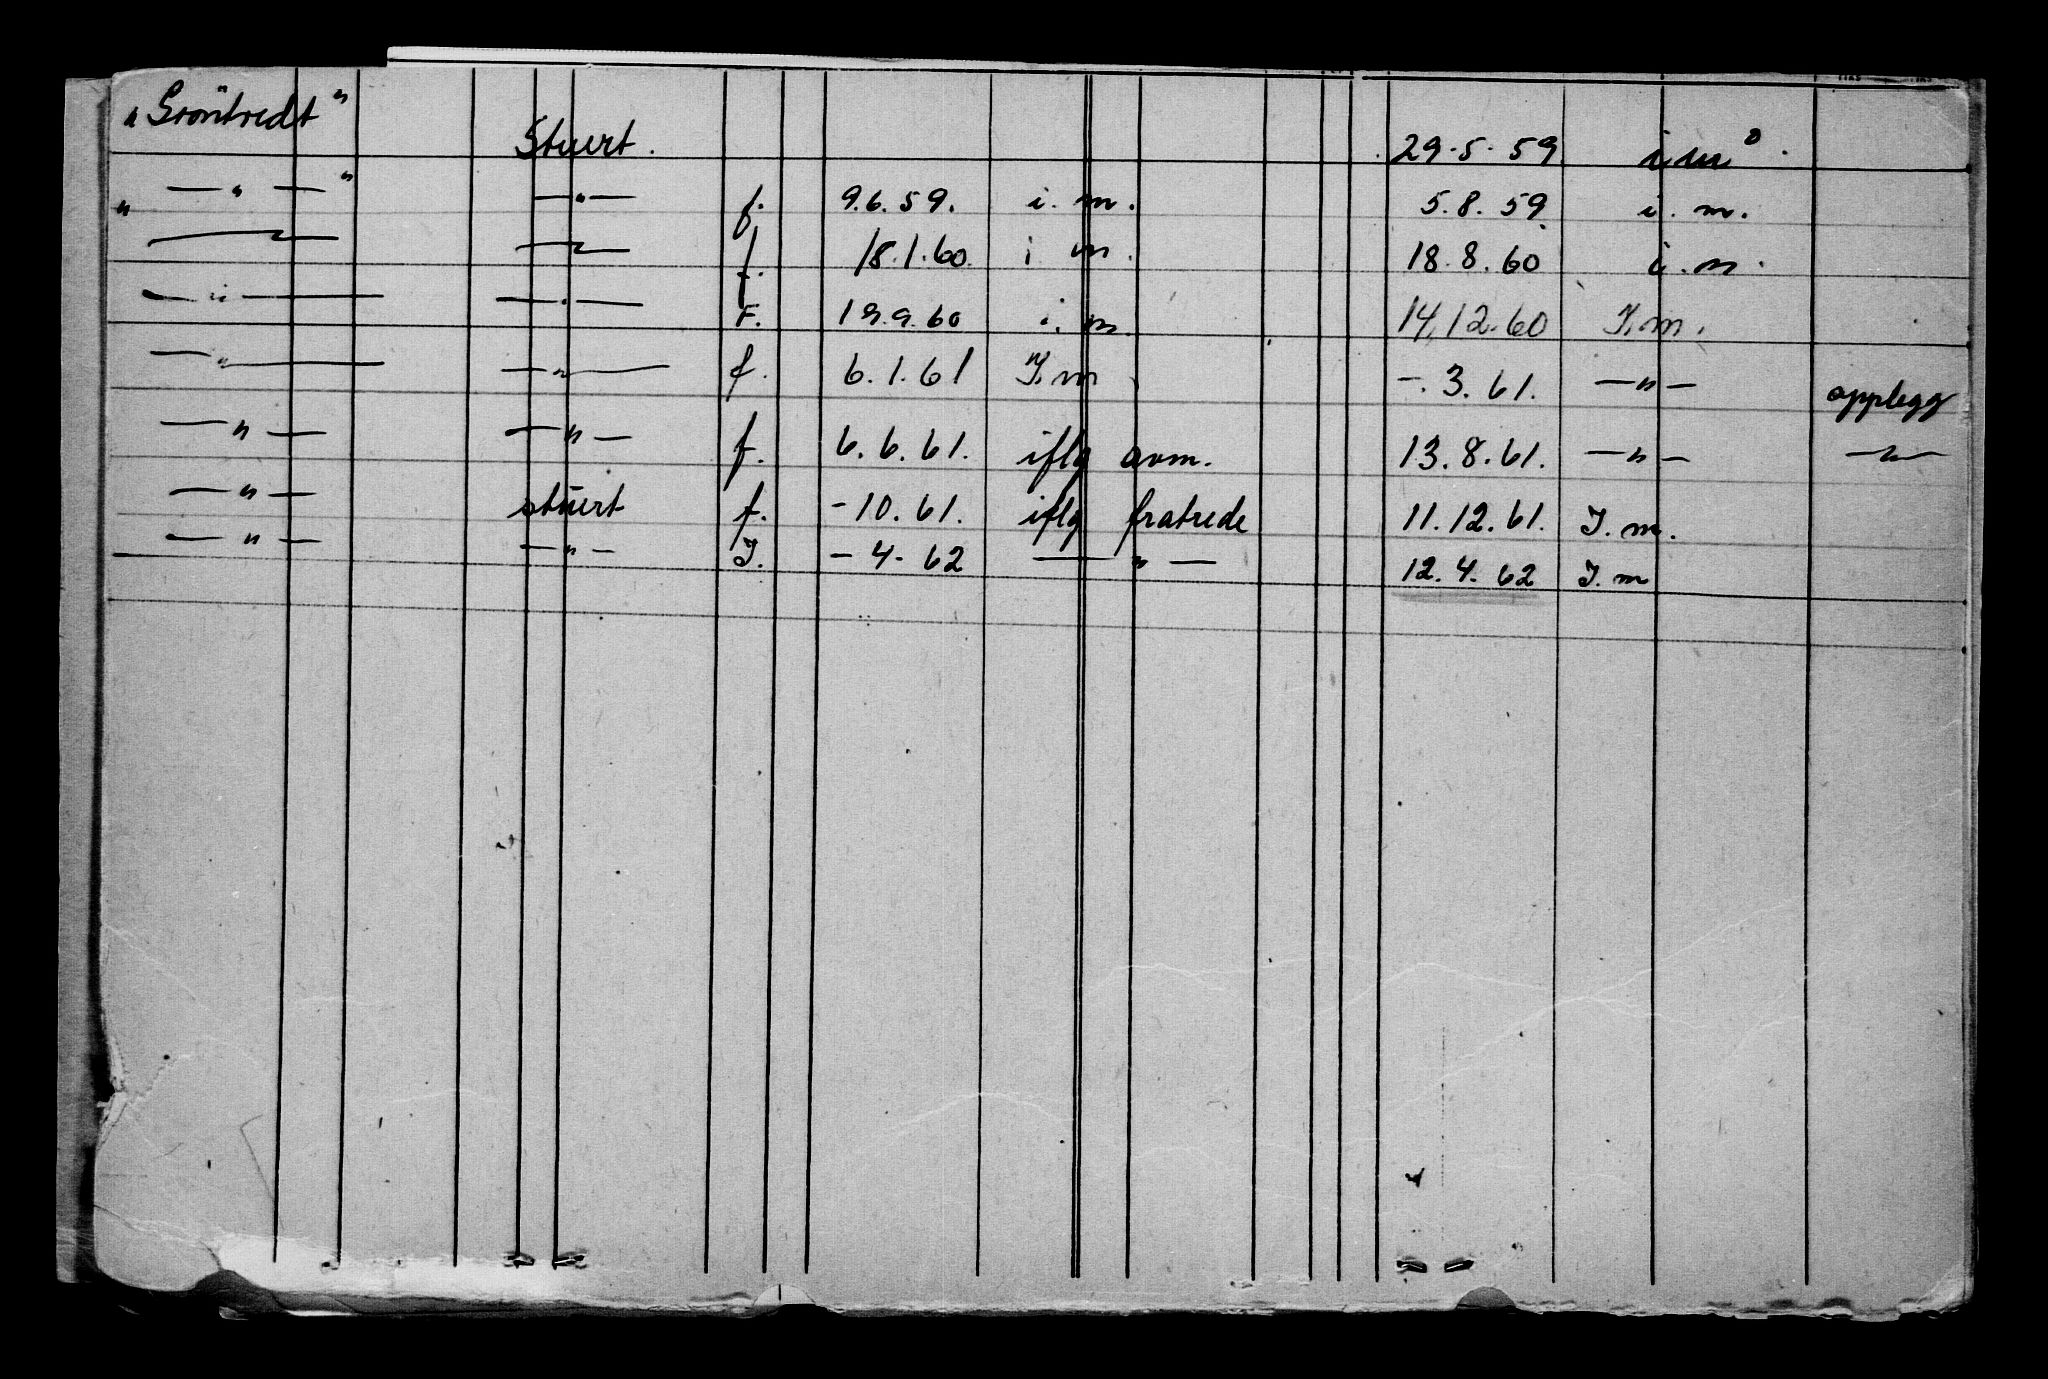 „Gröntvedt" Stuert. 29.5.59 i m.
" —"—" —"— f. 9.6.59. i. m. 5.8.59 i. m.
—"— —"— f. 18.1.60. i m. 18.8.60 i. m.
—"— —"— F. 19.9.60 i. m. 14.12.60 I. m.
—"— —"— f. 6.1.61 I. m —.3.61. —"— opplegg
—"— —"— f. 6.6.61. iflg avm. 13.8.61. —"— —"—
—"— stuert f. -10.61. iflg fratrede 11.12.61. I. m.
—"— —"— I. -4-62 —"— 12.4.62 I. m